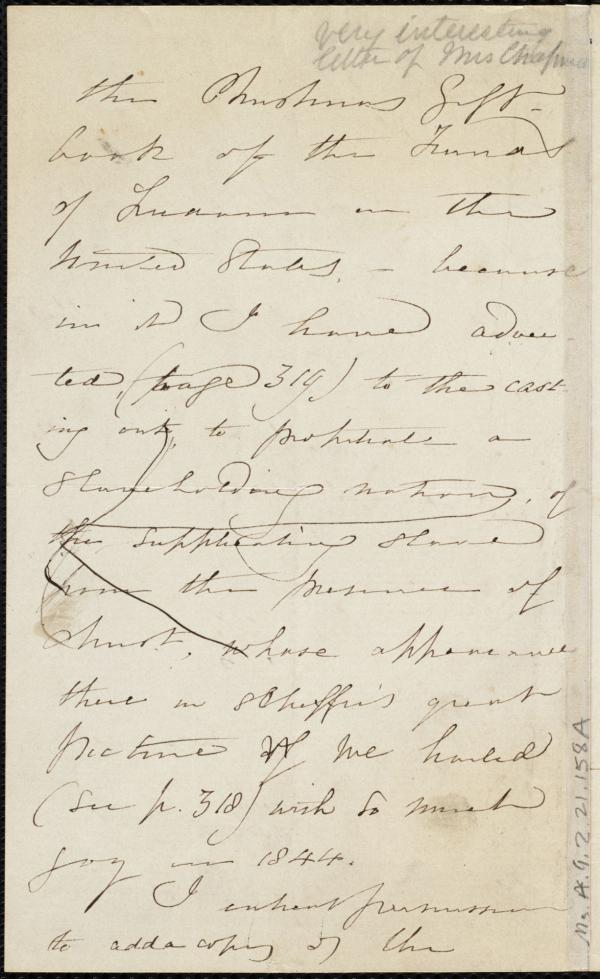 very interesting
letter of Mrs Chapman
the Christmas Gift-
book of the Friends
of Freedom in the
United States, - because
in it I have adver-
ted, (page 319) to the cast-
ing out, to propitiate a
slaveholding nation, of
the supplicating slave
from the presence of
Christ, whose appearance
there in Scheffer's great
picture we hailed
(see p. 318) with so much
joy in 1844.
I entreat permission
to add a copy of the
Ms. A. 9. 2. 21. 158A